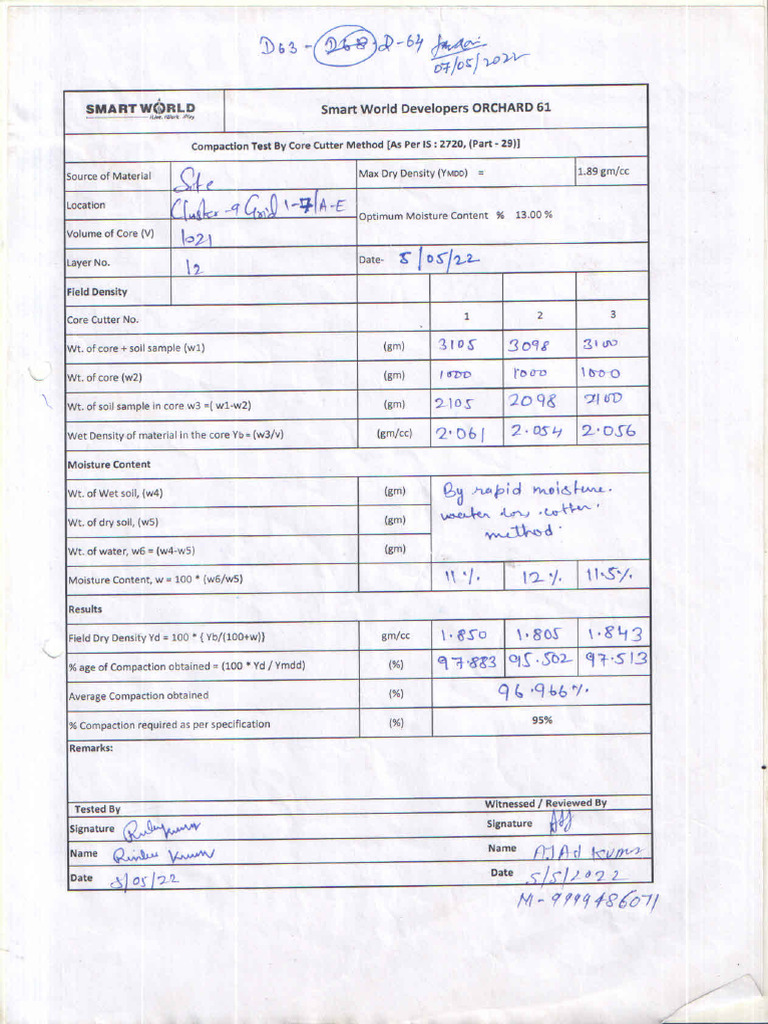 D63 - D68 D-64
07/05/2022
SMART WORLD
Live. Work. Play
Smart World Developers ORCHARD 61
Compaction Test By Core Cutter Method [As Per IS : 2720, (Part - 29)]
Source of Material Site Max Dry Density (YMDD) = 1.89 gm/cc
Location Cluster-9 Grid 1-7/A-E
Optimum Moisture Content % 13.00 %
Volume of Core (V) 1021
Layer No. 12 Date- 5/05/22
Field Density
Core Cutter No. 1 2 3
Wt. of core + soil sample (w1) (gm) 3105 3098 3100
Wt. of core (w2) (gm) 1000 1000 1000
Wt. of soil sample in core w3 =( w1-w2) (gm) 2105 2098 2100
Wet Density of material in the core Yb = (w3/v) (gm/cc) 2.061 2.054 2.056
Moisture Content
Wt. of Wet soil, (w4) (gm) By rapid moisture.
Wt. of dry soil, (w5) (gm)
method.
Wt. of water, w6 = (w4-w5) (gm)
Moisture Content, w = 100 * (w6/w5) 11% 12% 11.5%
Results
Field Dry Density Yd = 100 * { Yb/(100+w)} gm/cc 1.850 1.805 1.843
% age of Compaction obtained = (100 * Yd / Ymdd) (%) 97.883 95.502 97.513
Average Compaction obtained (%) 96.966%
% Compaction required as per specification (%) 95%
Remarks:
Tested By Witnessed / Reviewed By
Signature Signature
Name Name AJAd Kumar
Date 5/05/22 Date 5/5/2022
M-9999486071